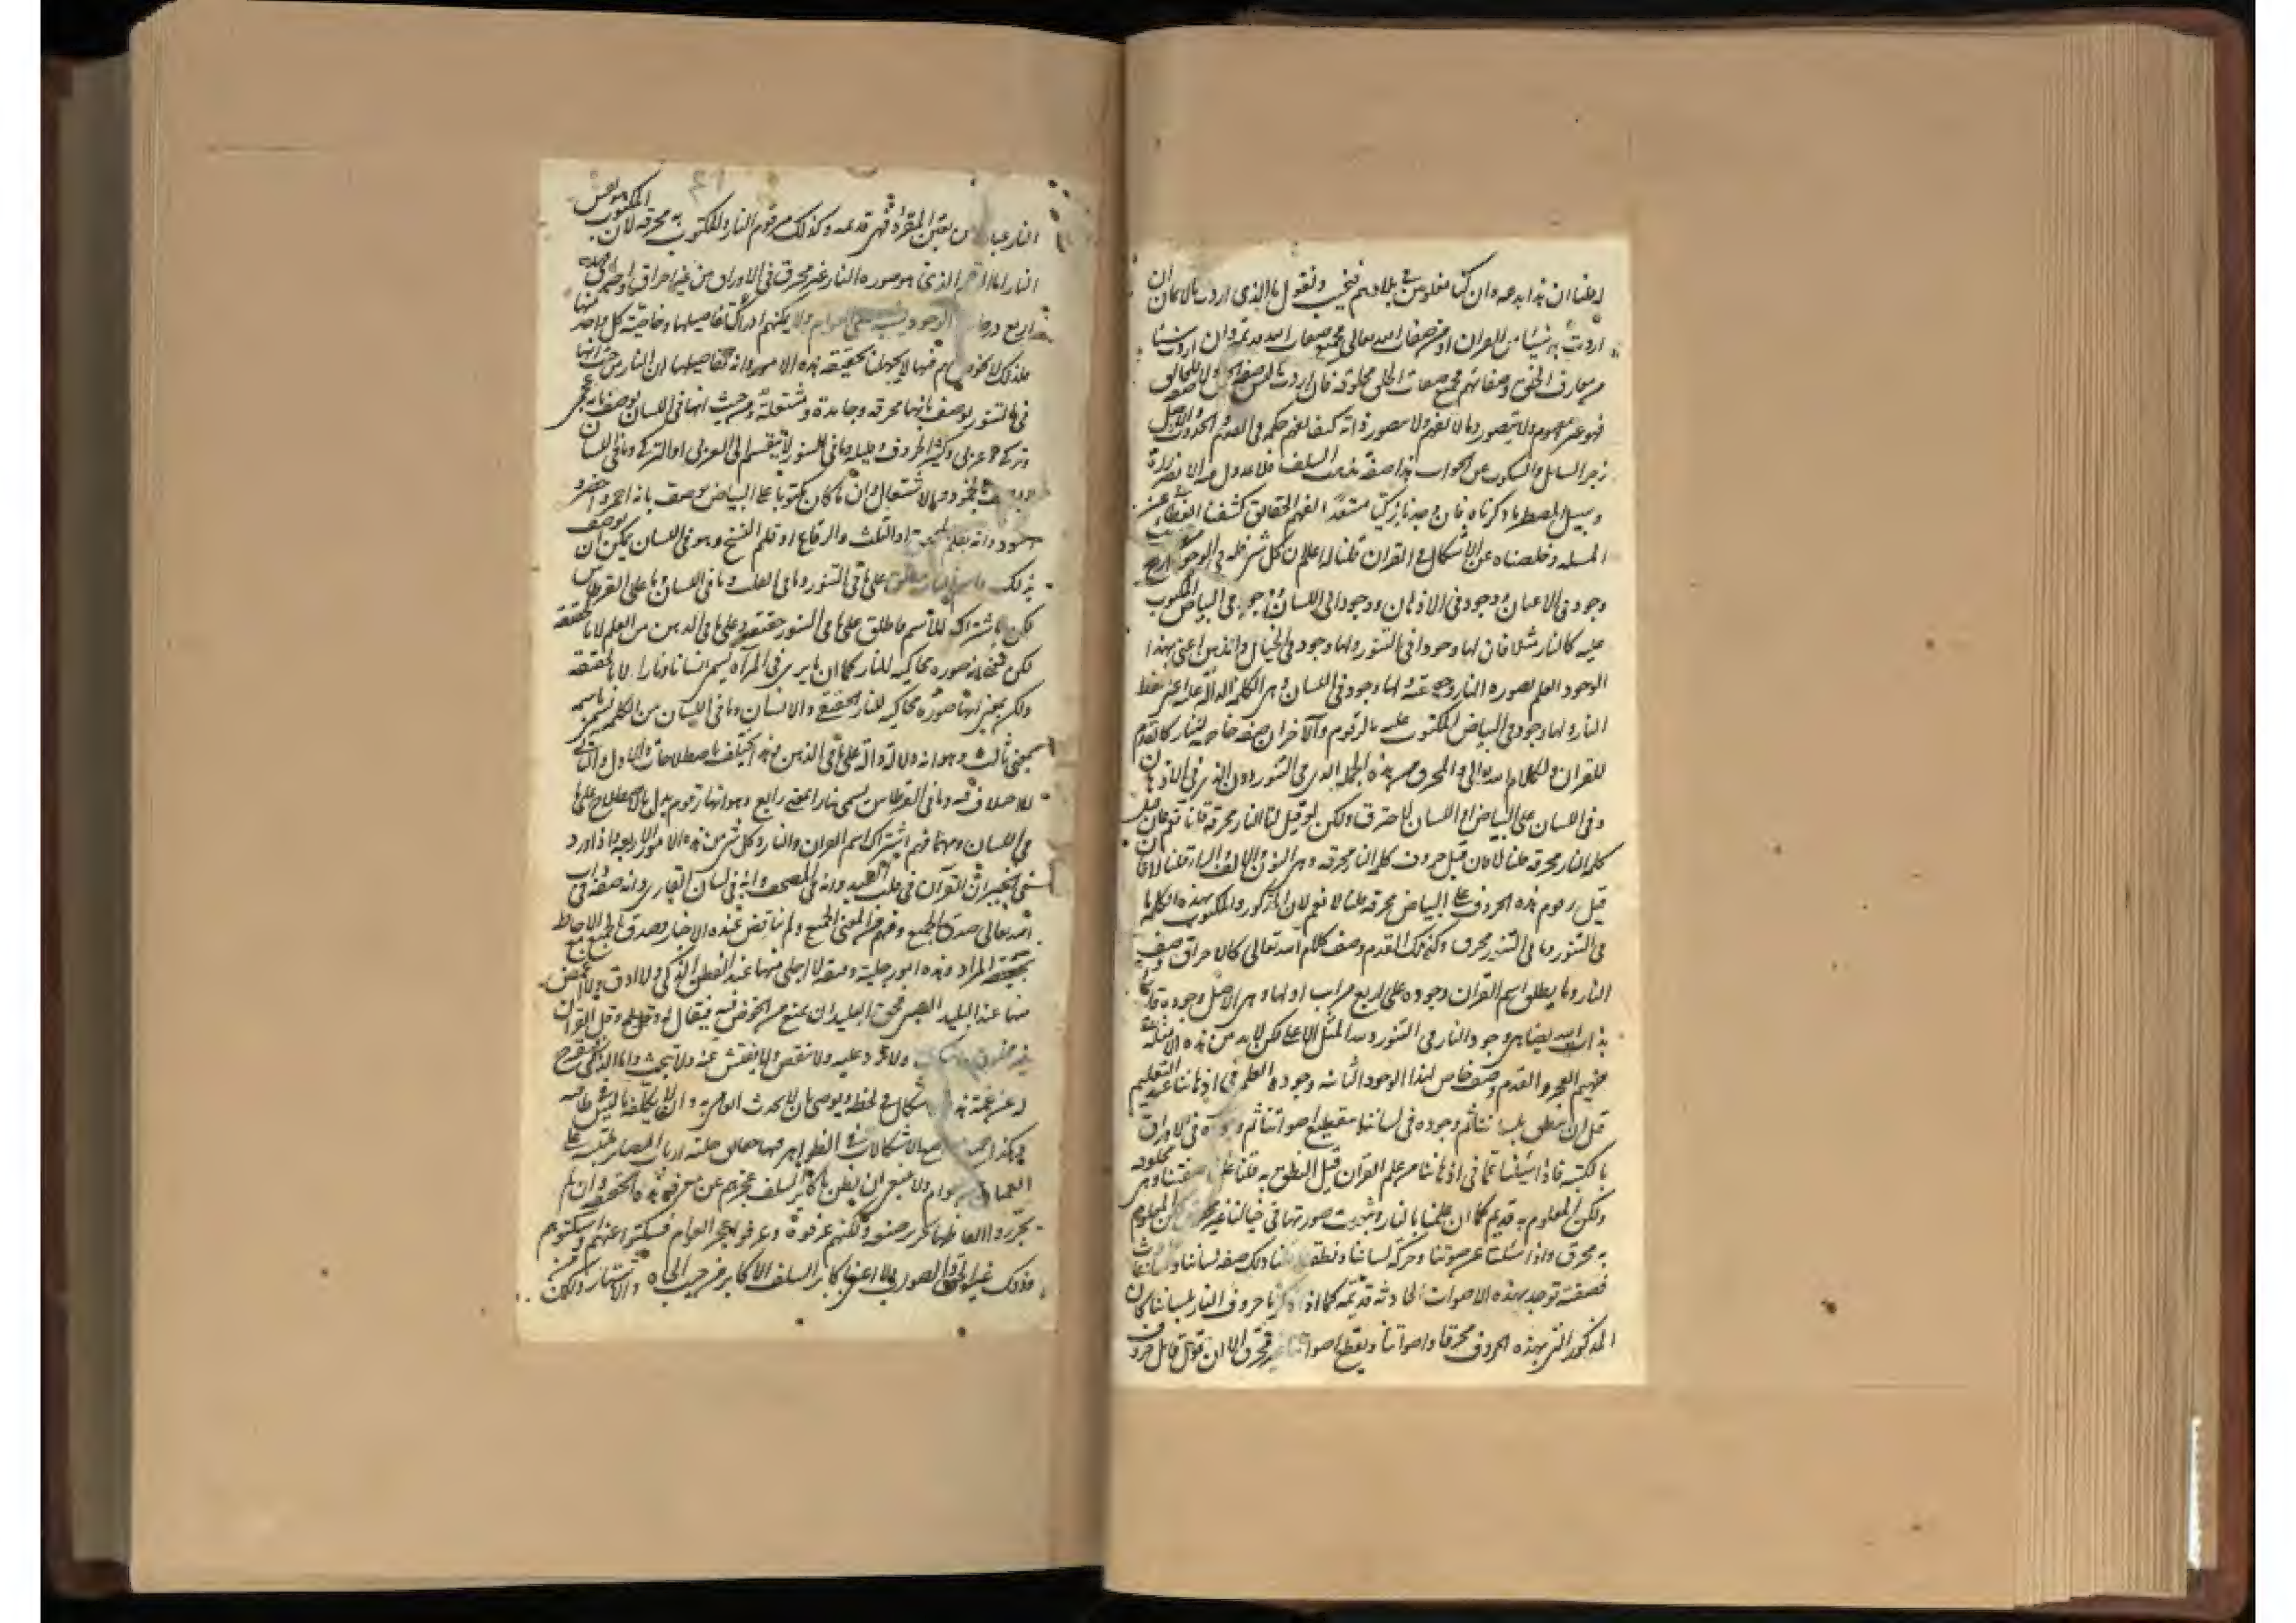 له علنا ان هذا بدعه وان كنا مغلوبين في بلادهم فنجيب ونقول ما الذى اردت بالايمان ان
اردت به شيئا من القران او من صفات الله تعالى فجميع صفات الله قديمة وان اردت شيئا
من معارف الخلق وصفاتهم فجميع صفات الخلق مخلوقة فان اردت ما ليس صفة للخلق ولا للخالق
فهو غير مفهوم ولا يتصور وما لا يفهم ولا يتصور ذاته كيف يفهم حكمه في القدم والحدوث والاصل
زجر السايل والسكوت عن الجواب هذا صفة مذهب السلف فلا عدول عنه الا بضرورة
وسبيل المضطر ما ذكرناه فان وجدنا ذكيا مستعدا لفهم الحقايق كشفنا الغطاء عن
المسله وخلصناه عن الاشكال في القران قلنا له اعلم ان كل شي فله في الوجود اربع
وجود في الاعيان ووجود في الاذهان ووجود في اللسان ووجود في البياض المكتوب
عليه كالنار مثلا فان لها وجودا في التنور ولها وجود في الخيال والذهن اعنى بهذا
الوجود العلم بصوره النار وحقيقتها ولها وجود في اللسان وهى الكلمه الدالة عليه اعنى لفظ
النار ولها وجود في البياض المكتوب عليه بالرقوم والاحراق صفه خاصه للنار كالقدم
للقران ولكلام الله تعالى والمحرق من هذه الجملة الذى في التنور دون الذى في الاذهان
وفي اللسان وعلى البياض اللسان لاحترق ولكن لو قيل لنا النار محرقه قلنا نعم فان قيل
كلمه النار محرقه قلنا لا فان قيل حروف كلمه النار محرقه وهى النون والالف والراء قلنا لا فان
قيل رقوم هذه الحروف على البياض محرقه قلنا لا فان قيل المذكور والمكتوب بهذه الكلمه ما
في التنور وما في التنور محرق وكذلك القدم وصف كلام الله تعالى كالاحراق وصف
النار وما يطلق اسم القران وجوده على اربع مراتب اولها وهى الاصل وجوده قائما
بذات الله يضاهى وجود النار في التنور ولله المثل الاعلى ولكن لابد من هذه الامثلة
تفهيم العجزه والقدم وصف خاص لهذا الوجود الثانيه وجوده العلمى في اذهاننا عند التعليم
قبل ان ننطق بلساننا ثم وجوده في لساننا بتقطيع اصواتنا ثم وجوده في الاوراق
بالكتبه فاذا سئلنا عما في اذهاننا من علم القران قبل النطق به قلنا علمنا صفتنا وهى مخلوقه
ولكن المعلوم به قديم كما ان علمنا بالنار وثبوت صورتها في خيالنا غير محرق لكن المعلوم
به محرق واذا سئلنا عن صوتنا وحركه لساننا ونطقنا قلنا ذلك صفه لساننا
فصفته توجد بهذه الاصوات الحادثه قديمه كما اذا ذكرنا حروف النار بلساننا كان
المذكور التى بهذه الحروف محرقا واصواتنا وتقطيع اصواتنا غير محرق الا ان يقول قائل حروف
النار عبارة عن نفس المقروء فهى قديمه وكذلك رقوم النار والمكتوب به محرقه لان المكتوب هو نفس
النار اما الرقم الذى هو صوره النار غير محرق في الاوراق من غير احراق واحتراق فهذه
اربع درجات الوجود يشتبه على العوام ولا يمكنهم ادراك تفاصيلها وخاصية كل واحد منها
فلذلك لا نخوض بهم فيها لا لجهلنا بحقيقة هذه الامور وانه تفاصيلها ان النار من حيث انها
في التنور يوصف بانها محرقه وجامدة ومشتعلة ومن حيث انها في اللسان يوصف بانه عجمى
وتركى وعربى وكثير الحروف وقليله وما في التنور لا ينقسم الى العربى او التركى وما في اللسان
لا يوصف بالخمود والاشتعال وان ما كان مكتوبا على البياض يوصف بانه احمر واخضر و
اسود وانه بقلم المحقق او الثلث والرقاع او قلم النسخ وهو في اللسان يمكن ان يوصف
بذلك واسم النار يطلق على ما في التنور وما في القلب وما في اللسان وما على القرطاس
لكن باشتراك الاسم فاطلق على ما في التنور حقيقة وعلى ما في الذهن من العلم لا بالحقيقه
لكن بمعنى انه صوره محاكيه للنار كما ان ما يرى في المرآه يسمى انسانا ونارا لا بالحقيقه
ولكن بمعنى انها صوره محاكيه للنار الحقيقي والانسان وما في اللسان من الكلمه تسمى باسمه
بمعنى ثالث وهو انه دلالة دالة على ما في الذهن وهذا يختلف باصطلاحات والاول والثاني
لا اختلاف فيه وما في القرطاس يسمى نارا بمعنى رابع وهو انها رقوم يدل بالاصطلاح على ما
في اللسان ومهما فهم اشتراك اسم القران والنار وكل شى من هذه الامور الاربعه فاذا ورد
في الخبر ان القرآن في قلب العبد وانه في المصحف وانه في لسان القارى وانه صفه ذات
الله تعالى صدق بالجميع وفهم معنى الجميع ولم يناقض عنده الاخبار وصدق بالجميع مع الاحاطه
بحقيقة المراد وهذه امور جلية دقيقة لا اجلى منها عند الفطن الذكى ولا ادق ولا اغمض
منها عند البليد الغبى فحق البليد ان يمنع من الخوض فيه فيقال له قل القران
غير مخلوق واسكت ولا تزد عليه ولا تنقص ولا تفتش عنه ولا تبحث واما الذكى فيروح
له عن غمة هذا الاشكال في لحظه ويوصى بان لا يحدث العامى به وان لا يكلفه ما ليس في طاقته
وهكذا جميع مواضع الاشكالات في الظواهر فيها حقائق جلية لارباب البصائر ملتبسة على
العميان من العوام ولا ينبغى ان يظن باكابر السلف عجزهم عن معرفة هذه الحقيقه وان لم
يحرروا الفاظها تحرير صنعه ولكنهم عرفوه وعرفوا عجز العوام فسكتوا عنهم واسكتوهم
وذلك عين الحق والصواب لا اعنى باكابر السلف الاكابر من حيث الجاه والاشتهار ولكن